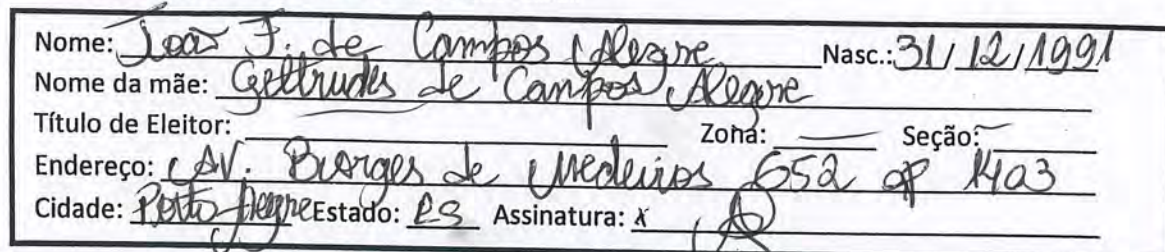 Nome: João F. de Campos Alegre Nasc.: 31/12/1991
Nome da mãe: Gettrudes de Campos Alegre
Título de Eleitor: Zona: — Seção: —
Endereço: AV. Borges de Medeiros 652 ap 1403
Cidade: Porto Alegre Estado: RS Assinatura: x